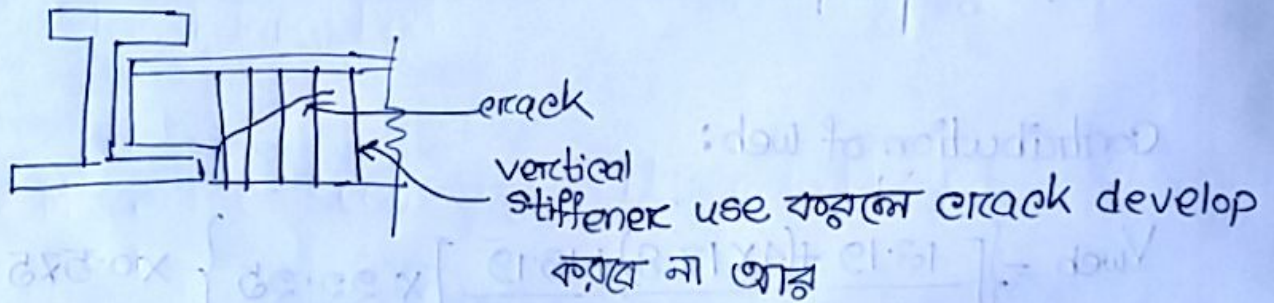 crack
vertical
stiffener use করলে crack develop
করবে না আর